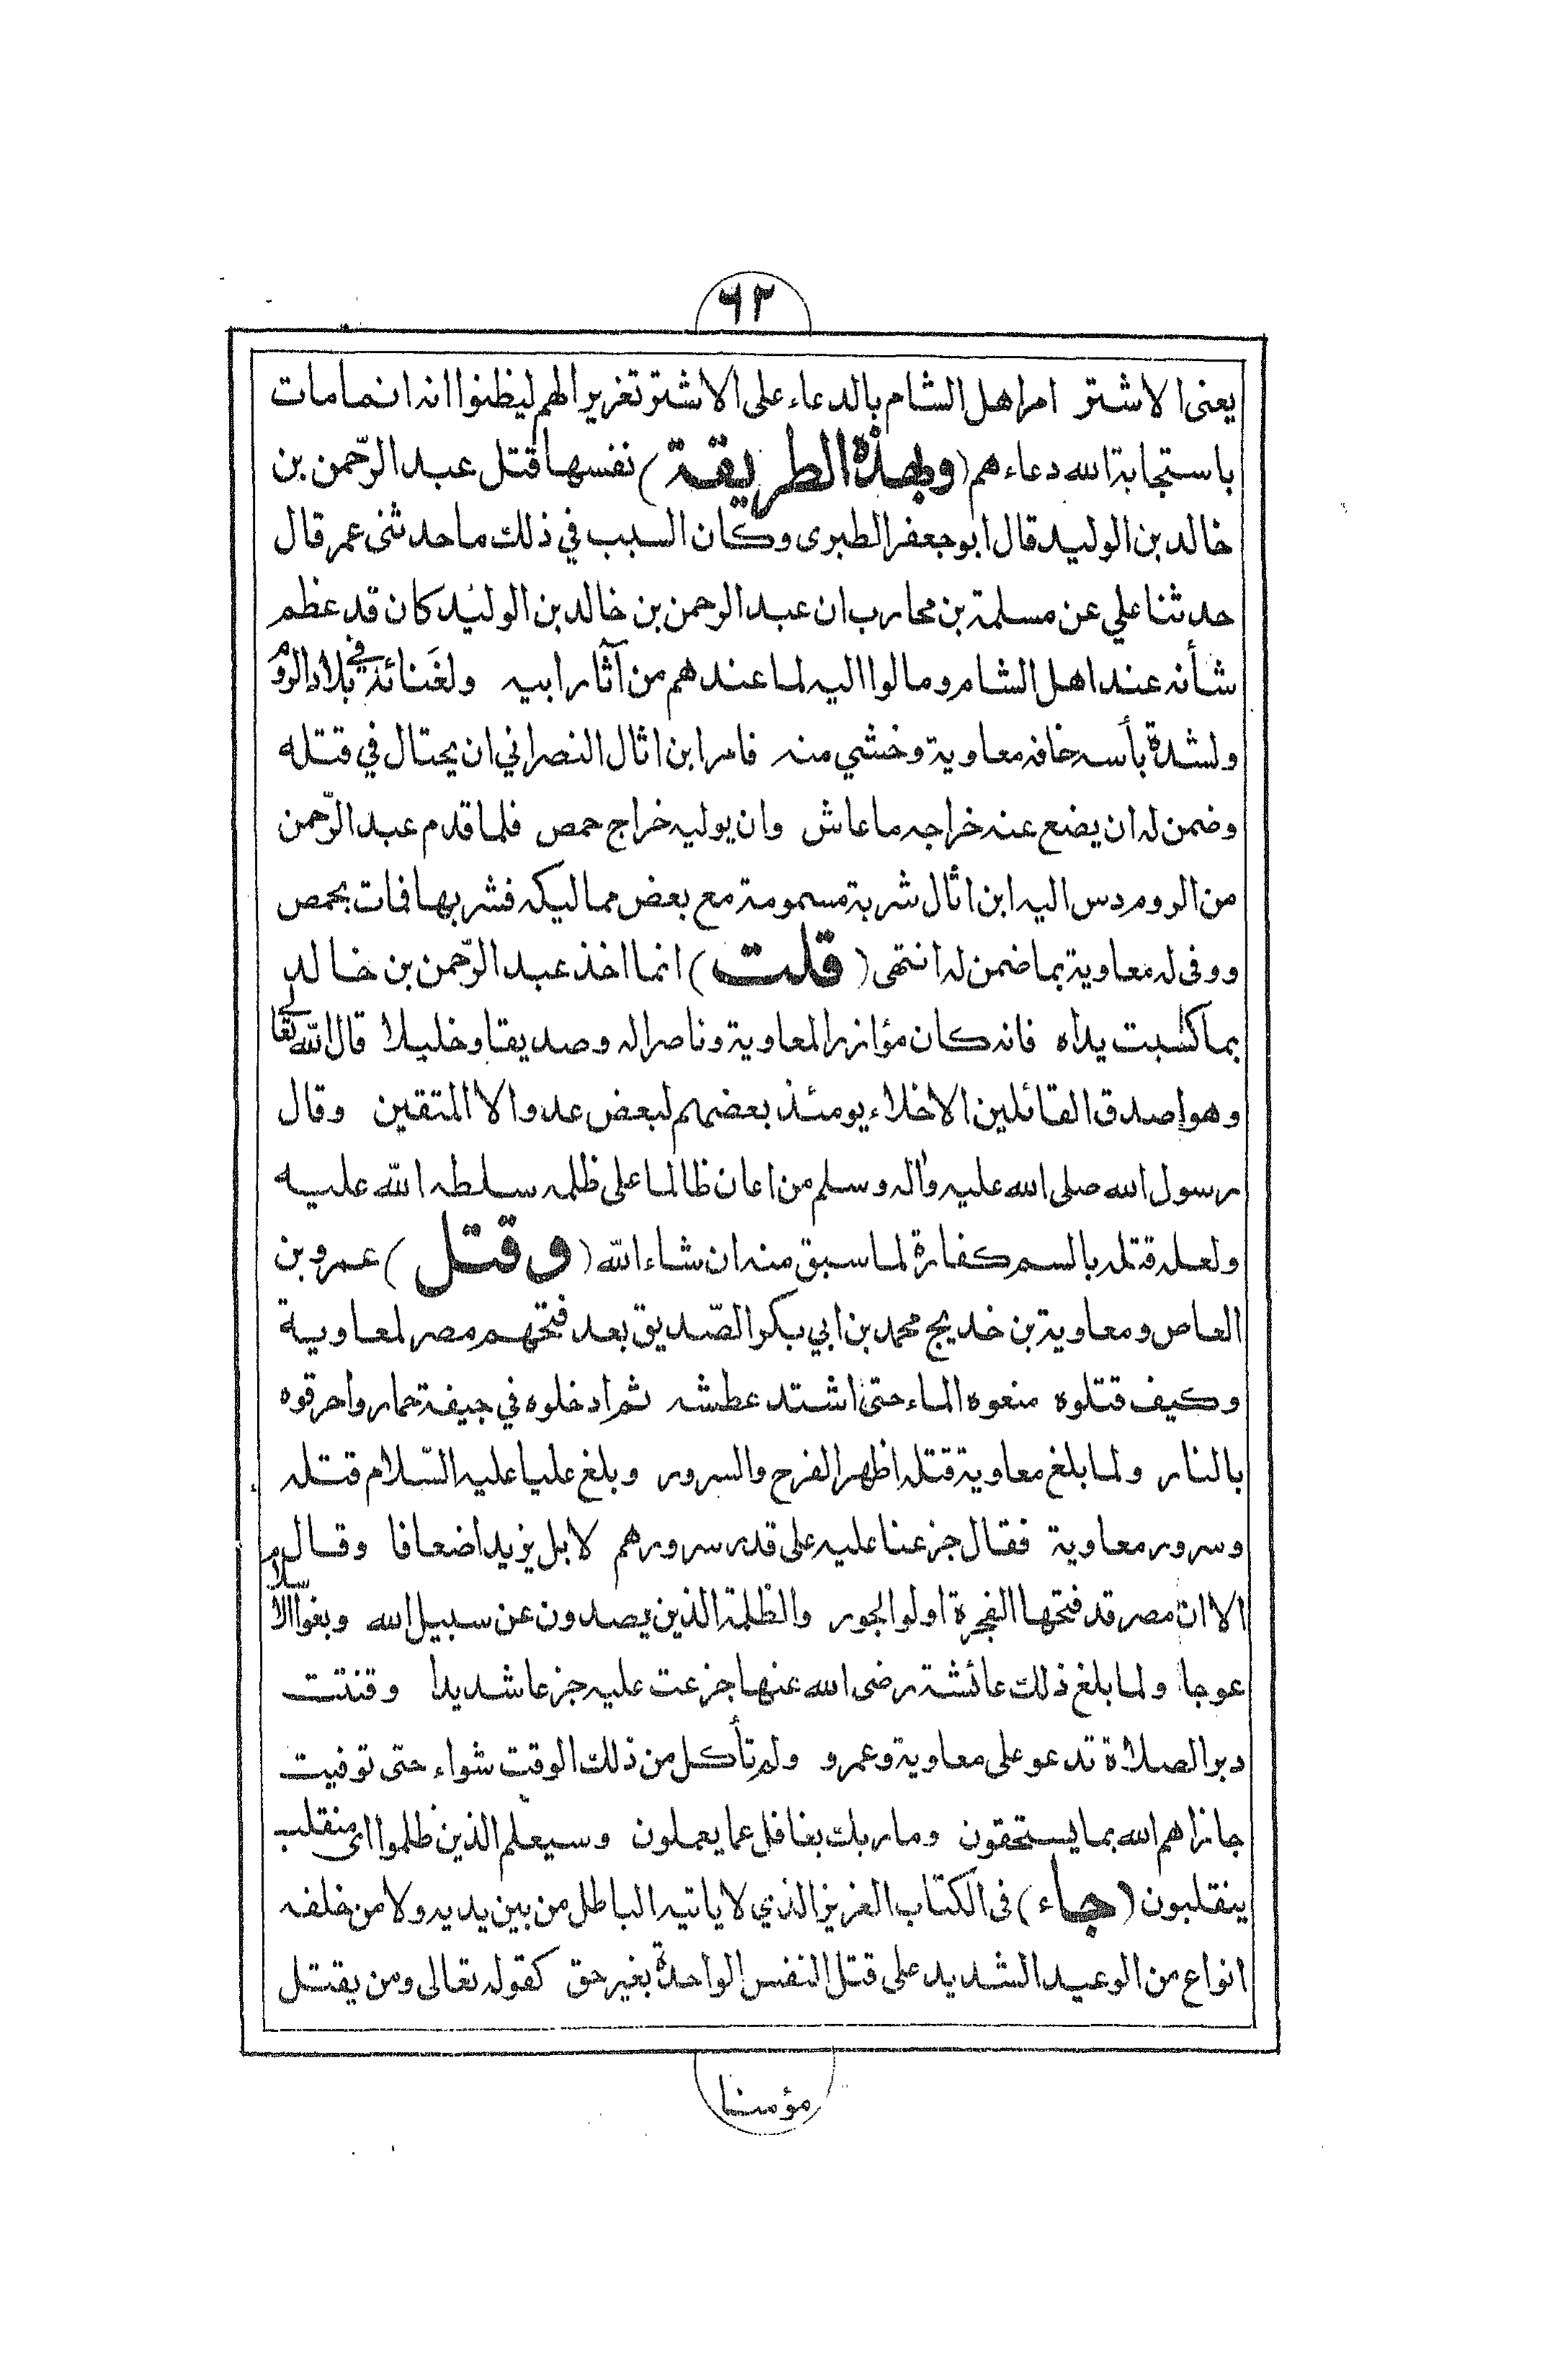 ٦٢
يعنى الاشتر امر اهل الشام بالدعاء على الاشتر تغريرا لهم ليظنوا انه انما مات
باستجابة الله دعاءهم (وبهذه الطريقة) نفسها قتل عبد الرّحمن بن
خالد بن الوليد قال ابو جعفر الطبرى وكان السبب في ذلك ما حدثنى عمر قال
حدثنا علي عن مسلمة بن محارب ان عبد الرحمن بن خالد بن الوليد كان قد عظم
شأنه عند اهل الشام ومالوا اليه لما عندهم من آثار ابيه ولغَنائه في بلاد الروم
ولشدة بأسه خافه معاوية وخشي منه فامر ابن اثال النصراني ان يحتال في قتله
وضمن له ان يضع عنه خراجه ما عاش وان يوليه خراج حمص فلما قدم عبد الرّحمن
من الروم دس اليه ابن اثال شربة مسمومة مع بعض مماليكه فشربها فمات بحمص
ووفى له معاوية بما ضمن له انتهى (قلت) انما اخذ عبد الرّحمن بن خالد
بما كسبت يداه فانه كان مؤازرا لمعاوية وناصرا له وصديقا وخليلا قال الله تعالى
وهو اصدق القائلين الاخلاء يومئذ بعضهم لبعض عدو الا المتقين وقال
رسول الله صلى الله عليه واله وسلم من اعان ظالما على ظلمه سلطه الله عليه
ولعله قتله بالسم كفارة لما سبق منه ان شاء الله (وقتل) عمرو بن
العاص ومعاوية بن خديج محمد بن ابي بكر الصّديق بعد فتحهم مصر لمعاوية
وكيف قتلوه منعوه الماء حتى اشتد عطشه ثم ادخلوه في جيفة حمار واحرقوه
بالنار ولما بلغ معاوية قتله اظهر الفرح والسرور وبلغ عليا عليه السّلام قتله
وسرور معاوية فقال جزعنا عليه على قدر سرورهم لا بل يزيد اضعافا وقال
الا ان مصر قد فتحها الفجرة اولوا الجور والظلمة الذين يصدون عن سبيل الله وبغوا الاسلام
عوجا ولما بلغ ذلك عائشة رضى الله عنها جزعت عليه جزعا شديدا وقنتت
دبر الصلاة تدعو على معاوية وعمرو ولم تأكل من ذلك الوقت شواء حتى توفيت
جازاهم الله بما يستحقون وما ربك بغافل عما يعملون وسيعلم الذين ظلموا اى منقلب
ينقلبون (جاء) فى الكتاب العزيز الذي لا ياتيه الباطل من بين يديه ولا من خلفه
انواع من الوعيد الشديد على قتل النفس الواحدة بغير حق كقوله تعالى ومن يقتل
مؤمنا